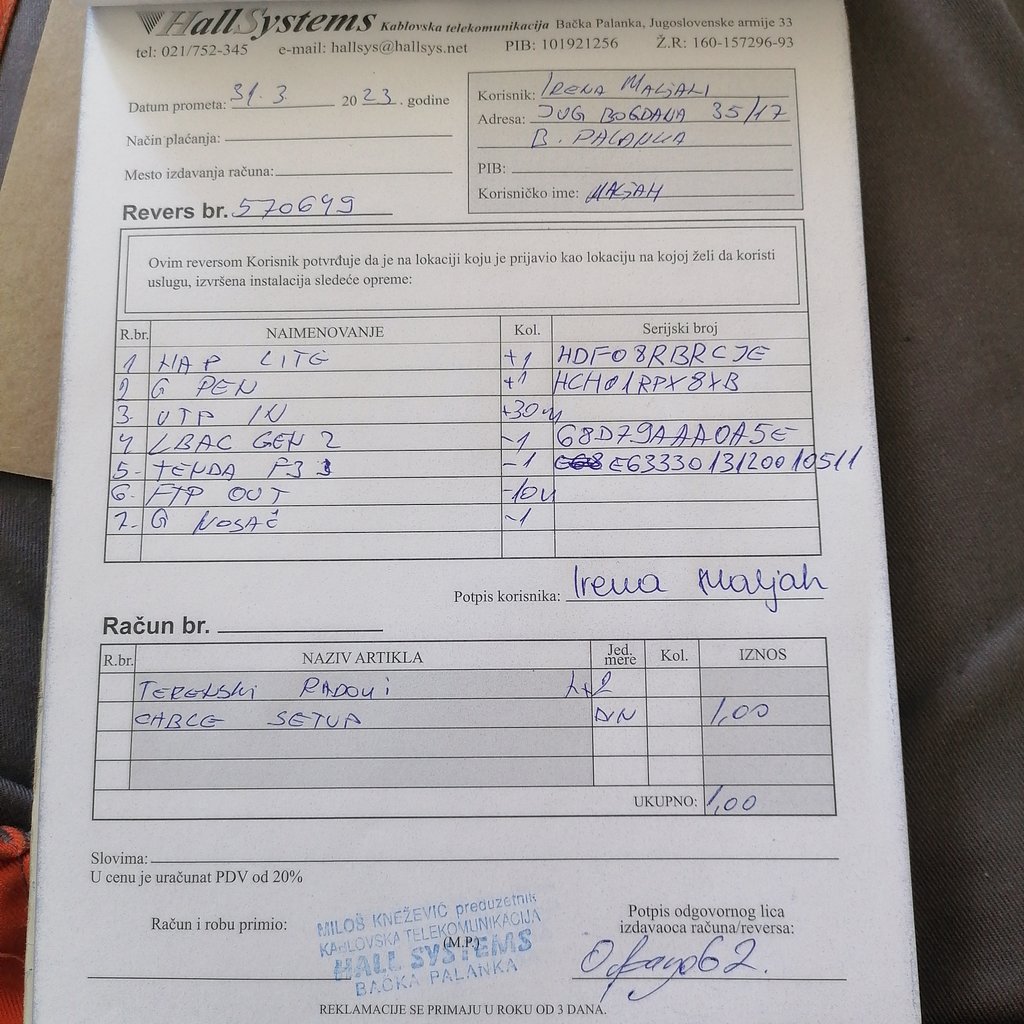 HallSystems Kablovska telekomunikacija Bačka Palanka, Jugoslovenske armije 33
tel: 021/752-345 e-mail: hallsys@hallsys.net PIB: 101921256 Ž.R: 160-157296-93
Datum prometa: 31.3. 2023. godine
Način plaćanja:
Mesto izdavanja računa:
Revers br. 570649
Korisnik: IRENA MALJAH
Adresa: JUG BOGDANA 35/17
B. PALANKA
PIB:
Korisničko ime: MALJAH
Ovim reversom Korisnik potvrđuje da je na lokaciji koju je prijavio kao lokaciju na kojoj želi da koristi
uslugu, izvršena instalacija sledeće opreme:
R.br. NAIMENOVANJE Kol. Serijski broj
1 HAP LITE +1 HDF08RBRCJE
2 G PEN +1 HCH01RPX8XB
3. UTP IN +30m
4 LBAC GEN 2 -1 68D79AAA0A5E
5. TENDA F3 -1 E6333013120010511
6. FTP OUT -10m
7. G NOSAČ -1
Potpis korisnika: Irena Maljah
Račun br.
R.br. NAZIV ARTIKLA Jed. mere Kol. IZNOS
TERENSKI RADOVI
CABLE SETUP DIN 1,00
UKUPNO: 1,00
Slovima:
U cenu je uračunat PDV od 20%
Račun i robu primio:
MILOŠ KNEŽEVIĆ preduzetnik
KABLOVSKA TELEKOMUNIKACIJA
(M.P.)
HALL SYSTEMS
BAČKA PALANKA
Potpis odgovornog lica
izdavaoca računa/reversa:
REKLAMACIJE SE PRIMAJU U ROKU OD 3 DANA.